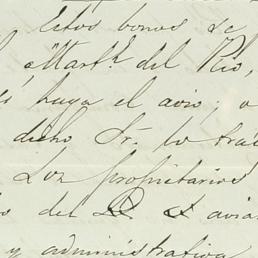 estos bonos se
Martz. del Rio,
haga el avio; o
dicho Sr. lo tra
Los propietarios
del avia
y administrativa